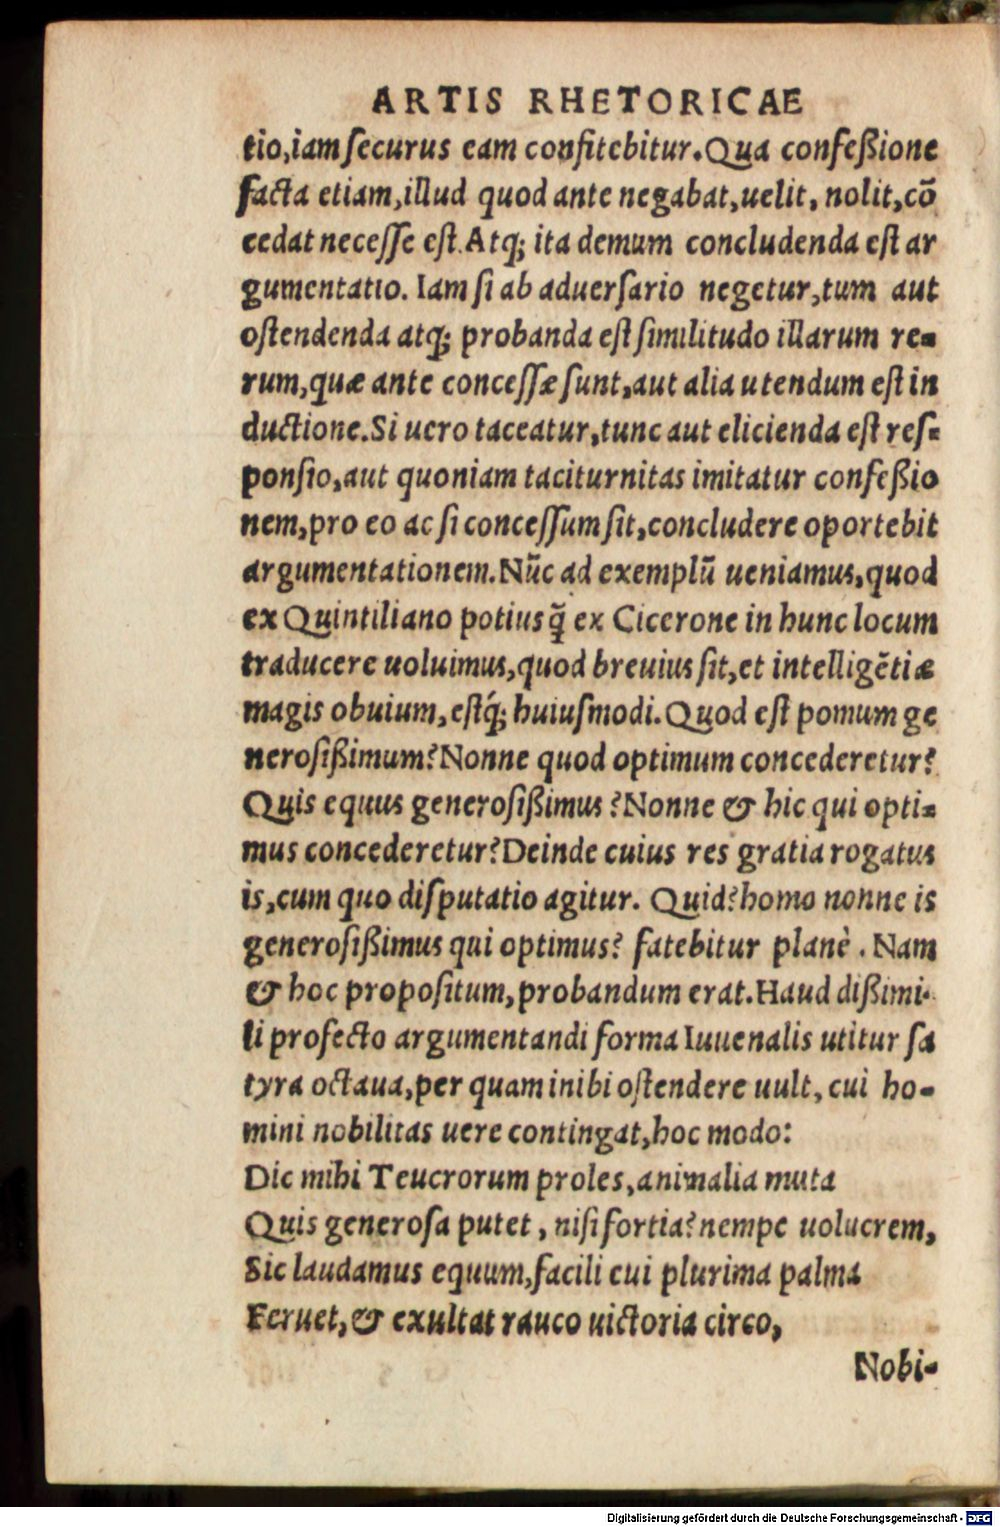 ARTIS RHETORICAE
tio,iam ſecurus eam confitebitur.Qua confeßione
facta etiam,illud quod ante negabat,uelit, nolit,cō
cedat neceſſe eſt.Atq; ita demum concludenda eſt ar
gumentatio. Iam ſi ab aduerſario negetur,tum aut
oſtendenda atq; probanda eſt ſimilitudo illarum re-
rum,quæ ante conceſſæ ſunt,aut alia utendum eſt in
ductione.Si uero taceatur,tunc aut elicienda eſt reſ-
ponſio,aut quoniam taciturnitas imitatur confeßio
nem,pro eo ac ſi conceſſum ſit,concludere oportebit
argumentationem.Nūc ad exemplū ueniamus,quod
ex Quintiliano potius q̃ ex Cicerone in hunc locum
traducere uoluimus,quod breuius ſit,et intelligētiæ
magis obuium,eſtq́; huiuſmodi.Quod eſt pomum ge
neroſißimum?Nonne quod optimum concederetur?
Quis equus generoſißimus?Nonne & hic qui opti-
mus concederetur?Deinde cuius res gratia rogatus
is,cum quo diſputatio agitur. Quid?homo nonne is
generoſißimus qui optimus? fatebitur planè. Nam
& hoc propoſitum,probandum erat.Haud dißimi-
li profecto argumentandi forma Iuuenalis utitur ſa
tyra octaua,per quam inibi oſtendere uult, cui ho-
mini nobilitas uere contingat,hoc modo:
Dic mihi Teucrorum proles,animalia muta
Quis generoſa putet, niſi fortia?nempe uolucrem,
Sic laudamus equum,facili cui plurima palma
Feruet,& exultat rauco uictoria circo,
Nobi-
Digitalisierung gefördert durch die Deutsche Forschungsgemeinschaft - DFG